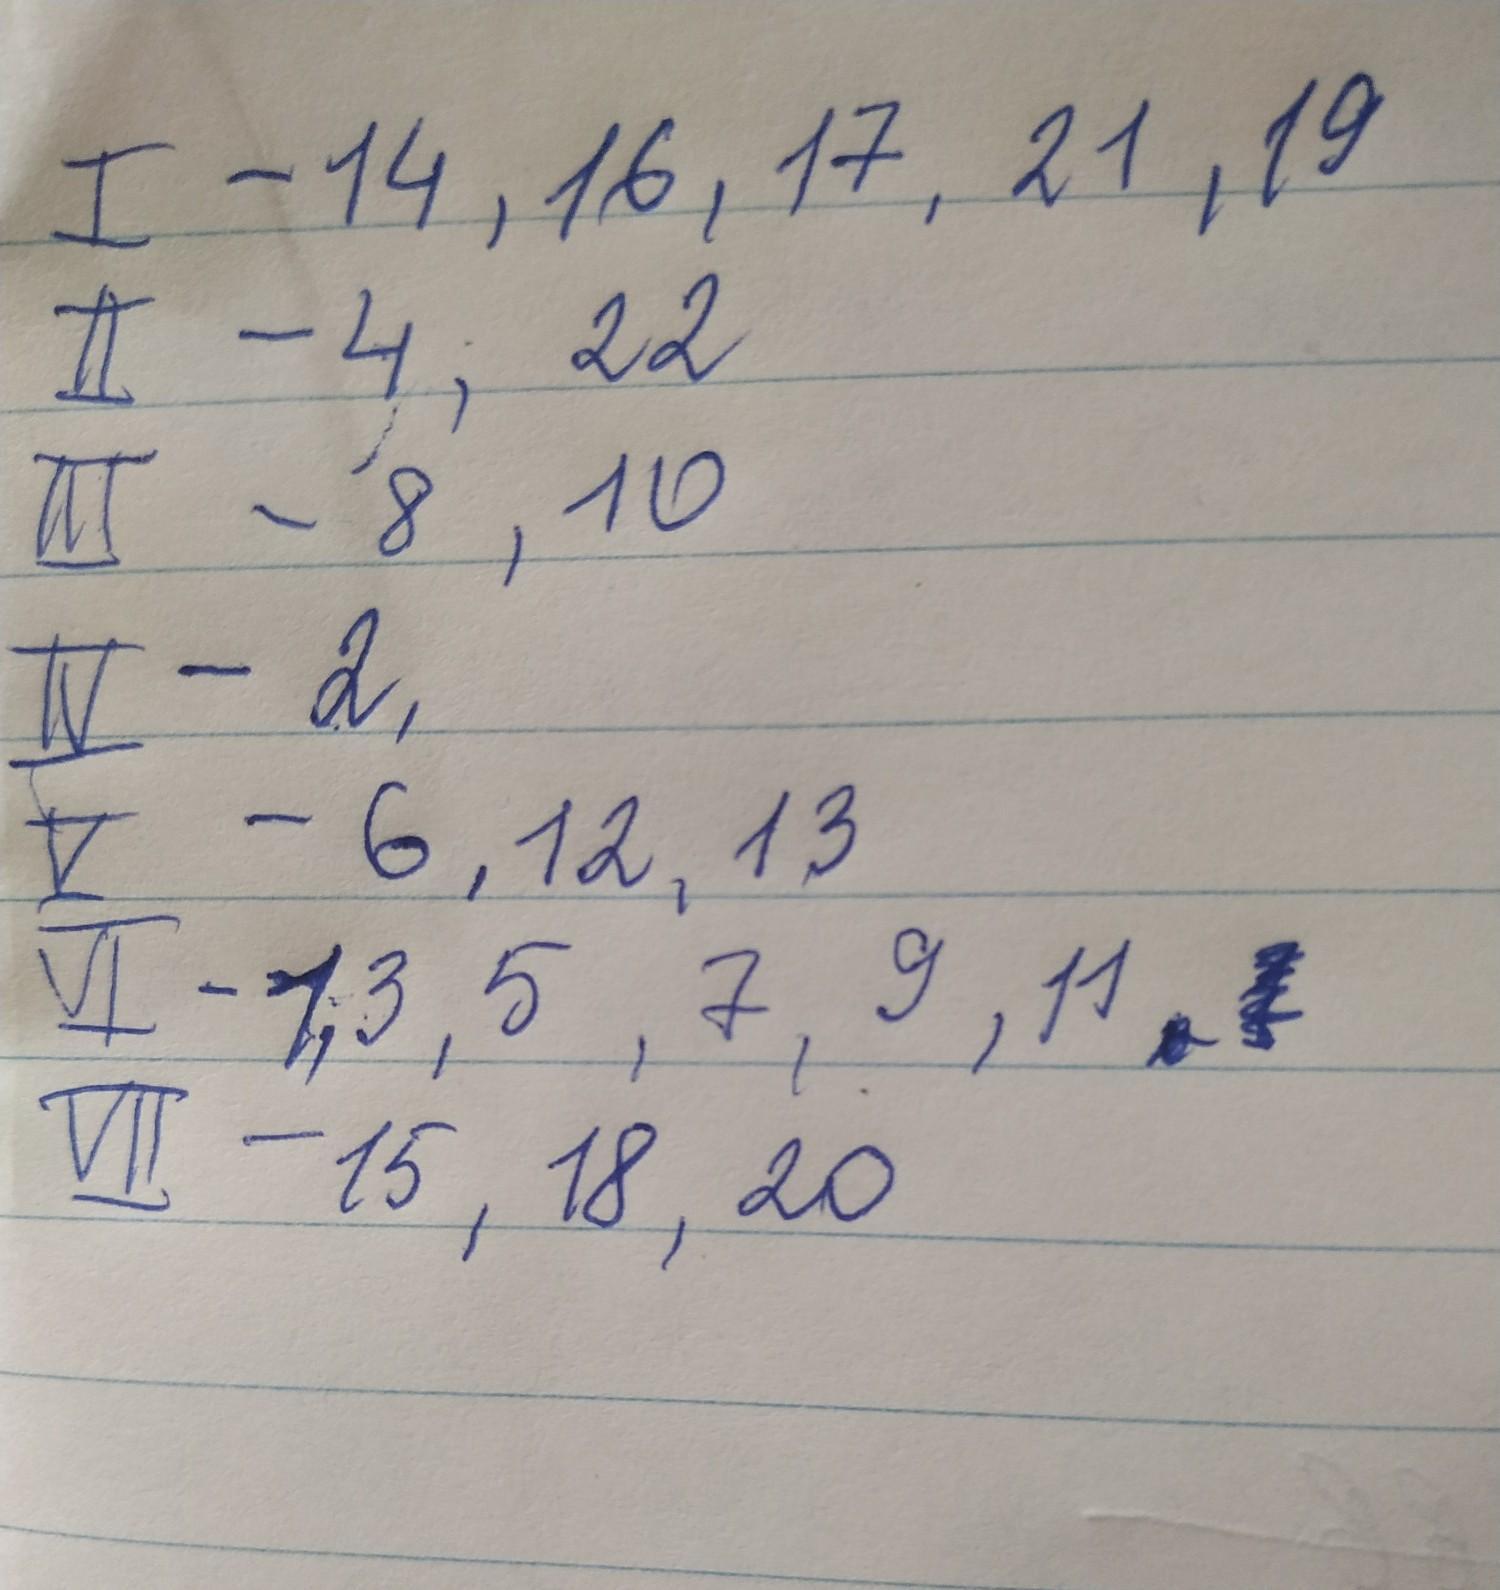 I - 14, 16, 17, 21, 19
II - 4, 22
III - 8, 10
IV - 2,
V - 6, 12, 13
VI - 1, 3, 5, 7, 9, 11
VII - 15, 18, 20